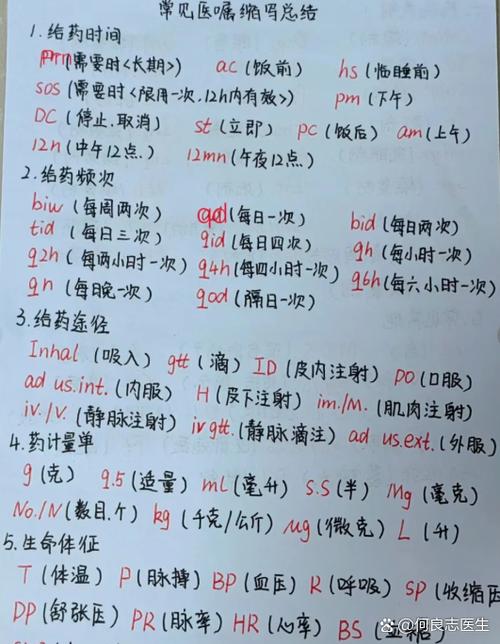 常见医嘱缩写总结
1.给药时间
prn(需要时<长期>) ac(饭前) hs(临睡前)
sos(需要时<限用一次,12h内有效>) pm(下午)
DC(停止.取消) st(立即) pc(饭后) am(上午)
12n(中午12点.) 12mn(午夜12点.)
2.给药频次
biw(每周两次) qd(每日一次) bid(每日两次)
tid(每日三次) qid(每日四次) qh(每小时一次)
q2h(每两小时一次) q4h(每四小时一次) q6h(每六小时一次)
qn(每晚一次) qod(隔日一次)
3.给药途径
Inhal(吸入) gtt(滴) ID(皮内注射) PO(口服)
ad us.int.(内服) H(皮下注射) im./M.(肌肉注射)
iv./V.(静脉注射) iv gtt.(静脉滴注) ad us.ext.(外服)
4.药计量单
g(克) q.s(适量) mL(毫升) S.S(半) Mg(毫克)
No./N(数目.个) kg(千克/公斤) ug(微克) L(升)
5.生命体征
T(体温) P(脉搏) BP(血压) R(呼吸) SP(收缩压
DP(舒张压) PR(脉率) HR(心率) BS(
@何良志医生